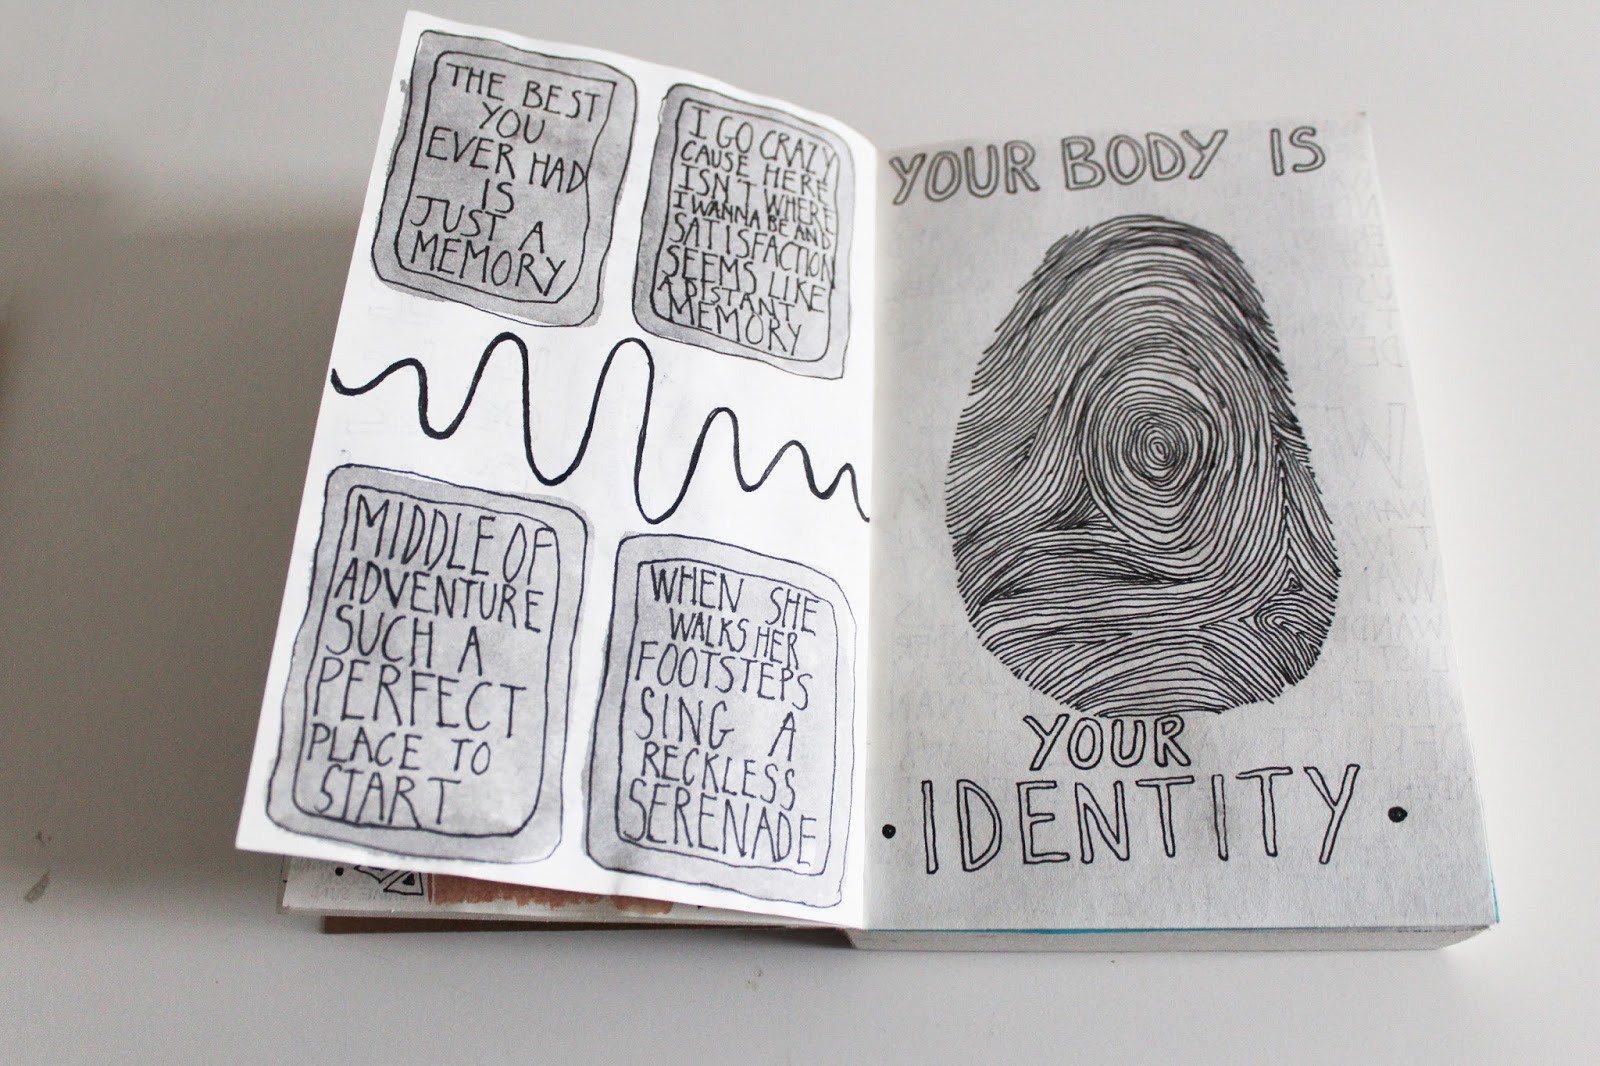 THE BEST
YOU
EVER HAD
IS
JUST A
MEMORY
I GO CRAZY
CAUSE HERE
ISN'T WHERE
I WANNA BE AND
SATISFACTION
SEEMS LIKE
A DESTANT
MEMORY
MIDDLE OF
ADVENTURE
SUCH A
PERFECT
PLACE TO
START
WHEN SHE
WALKS HER
FOOTSTEPS
SING A
RECKLESS
SERENADE
YOUR BODY IS
YOUR
• IDENTITY •